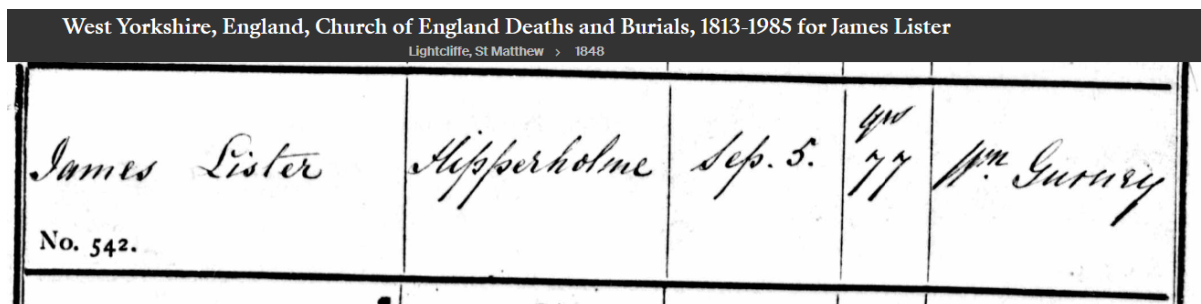 West Yorkshire, England, Church of England Deaths and Burials, 1813-1985 for James Lister
Lightcliffe, St Matthew > 1848
James Lister Hipperholme Sep. 5. yrs 77 Wm Gurney
No. 542.